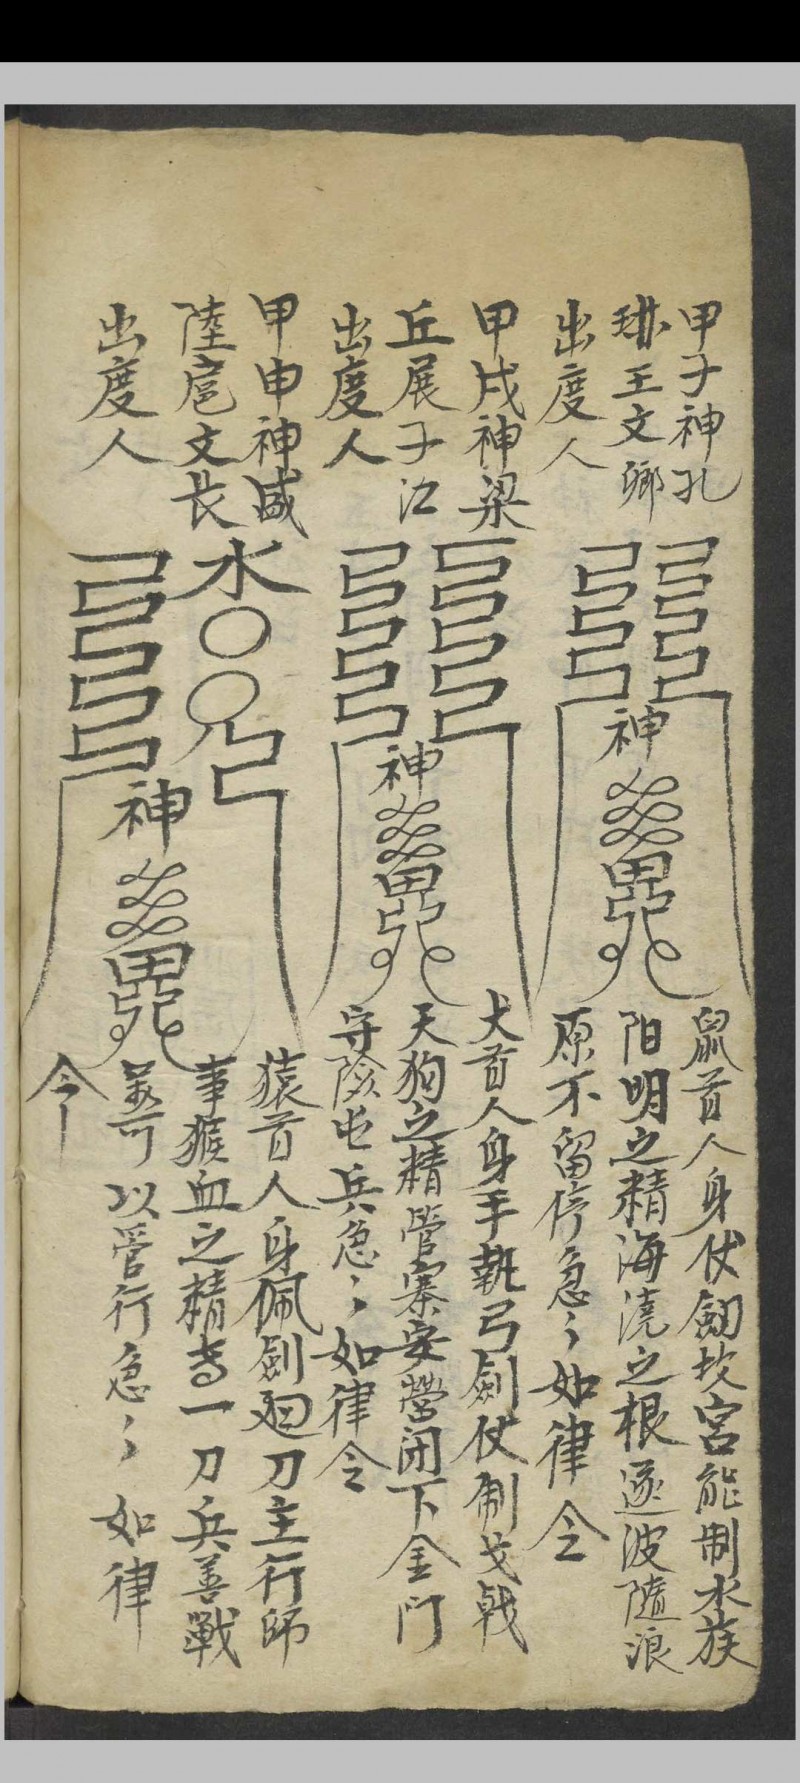 甲子神孔
琳王文卿
出度人
神
鼠首人身仗劎坎宫能制水族
阳明之精海澆之根逐波隨浪
原不留停急々如律令
甲戌神梁
丘展子江
出度人
神
犬首人身手執弓劍仗制戈戟
天狗之精管寨安營闭下金门
守險屯兵急々如律令
甲申神盛
陸扈文長
出度人
水
神
猿首人身佩劍廻刀主行師
事猴血之精 一刀兵善戰
可以管行急々如律
令